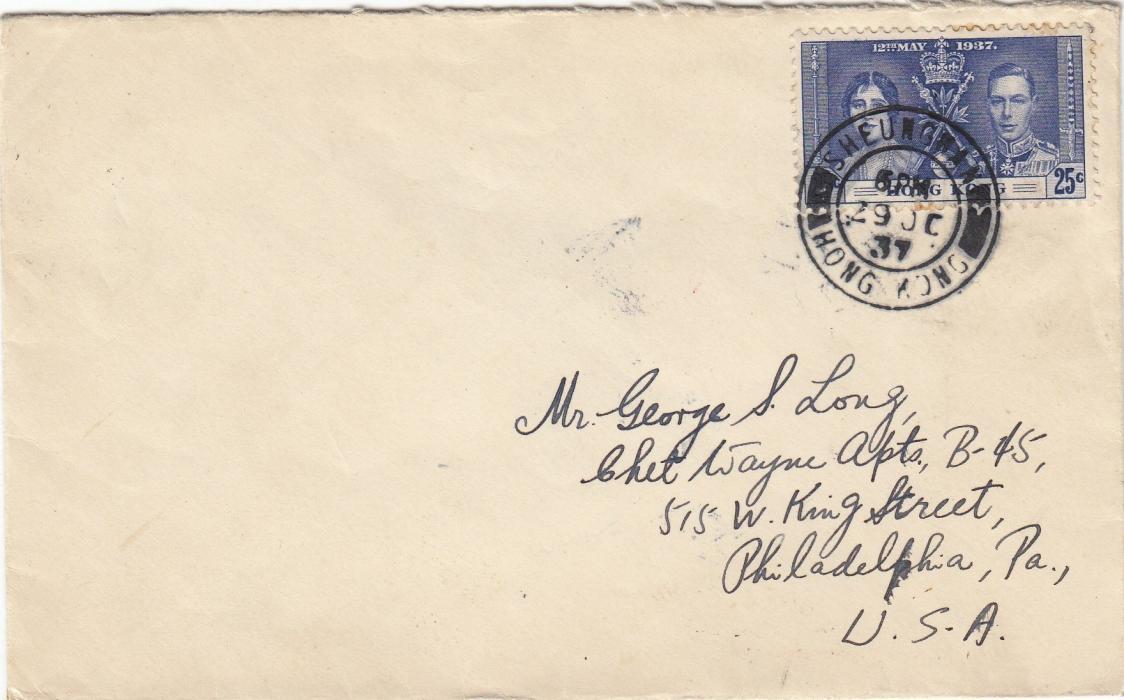 12TH MAY 1937.
HONG KONG 25c
SHEUNGWAN
6PM
29 OC
37
HONG KONG
Mr. George S. Long,
Chet Wayne Apts., B-45,
515 W. King Street,
Philadelphia, Pa.,
U.S.A.